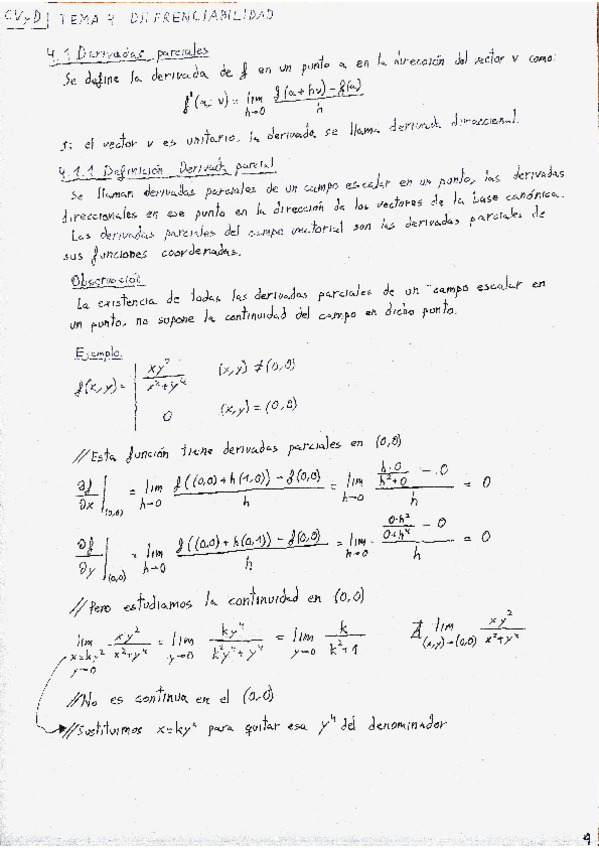 CVyD | TEMA 4 DIFRENCIABILIDAD
4.1 Derivadas parciales
Se define la derivada de f en un punto a en la dirección del vector v como:
f'(a; v) = lim h→0 (f(a+hv) - f(a)) / h
si el vector v es unitario, la derivada se llama derivada direccional.
4.1.1 Definición Derivada parcial
Se llaman derivadas parciales de un campo escalar en un punto, las derivadas
direccionales en ese punto en la dirección de los vectores de la base canónica.
Las derivadas parciales del campo vectorial son las derivadas parciales de
sus funciones coordenadas.
Observación
La existencia de todas las derivadas parciales de un campo escalar en
un punto, no supone la continuidad del campo en dicho punto.
Ejemplo
f(x,y) = | xy² / (x²+y⁴) (x,y) ≠ (0,0)
0 (x,y) = (0,0)
//Esta función tiene derivadas parciales en (0,0)
∂f/∂x |(0,0) = lim h→0 (f((0,0)+h(1,0)) - f(0,0)) / h = lim h→0 ((h·0)/(h²+0) - 0) / h = 0
∂f/∂y |(0,0) = lim h→0 (f((0,0)+h(0,1)) - f(0,0)) / h = lim h→0 ((0·h²)/(0+h⁴) - 0) / h = 0
//Pero estudiamos la continuidad en (0,0)
lim x=ky² y→0 xy²/(x²+y⁴) = lim y→0 ky⁴/(k²y⁴+y⁴) = lim y→0 k/(k²+1) ∄ lim (x,y)→(0,0) xy²/(x²+y⁴)
//No es continua en el (0,0)
//Sustituimos x=ky² para quitar esa y⁴ del denominador
4